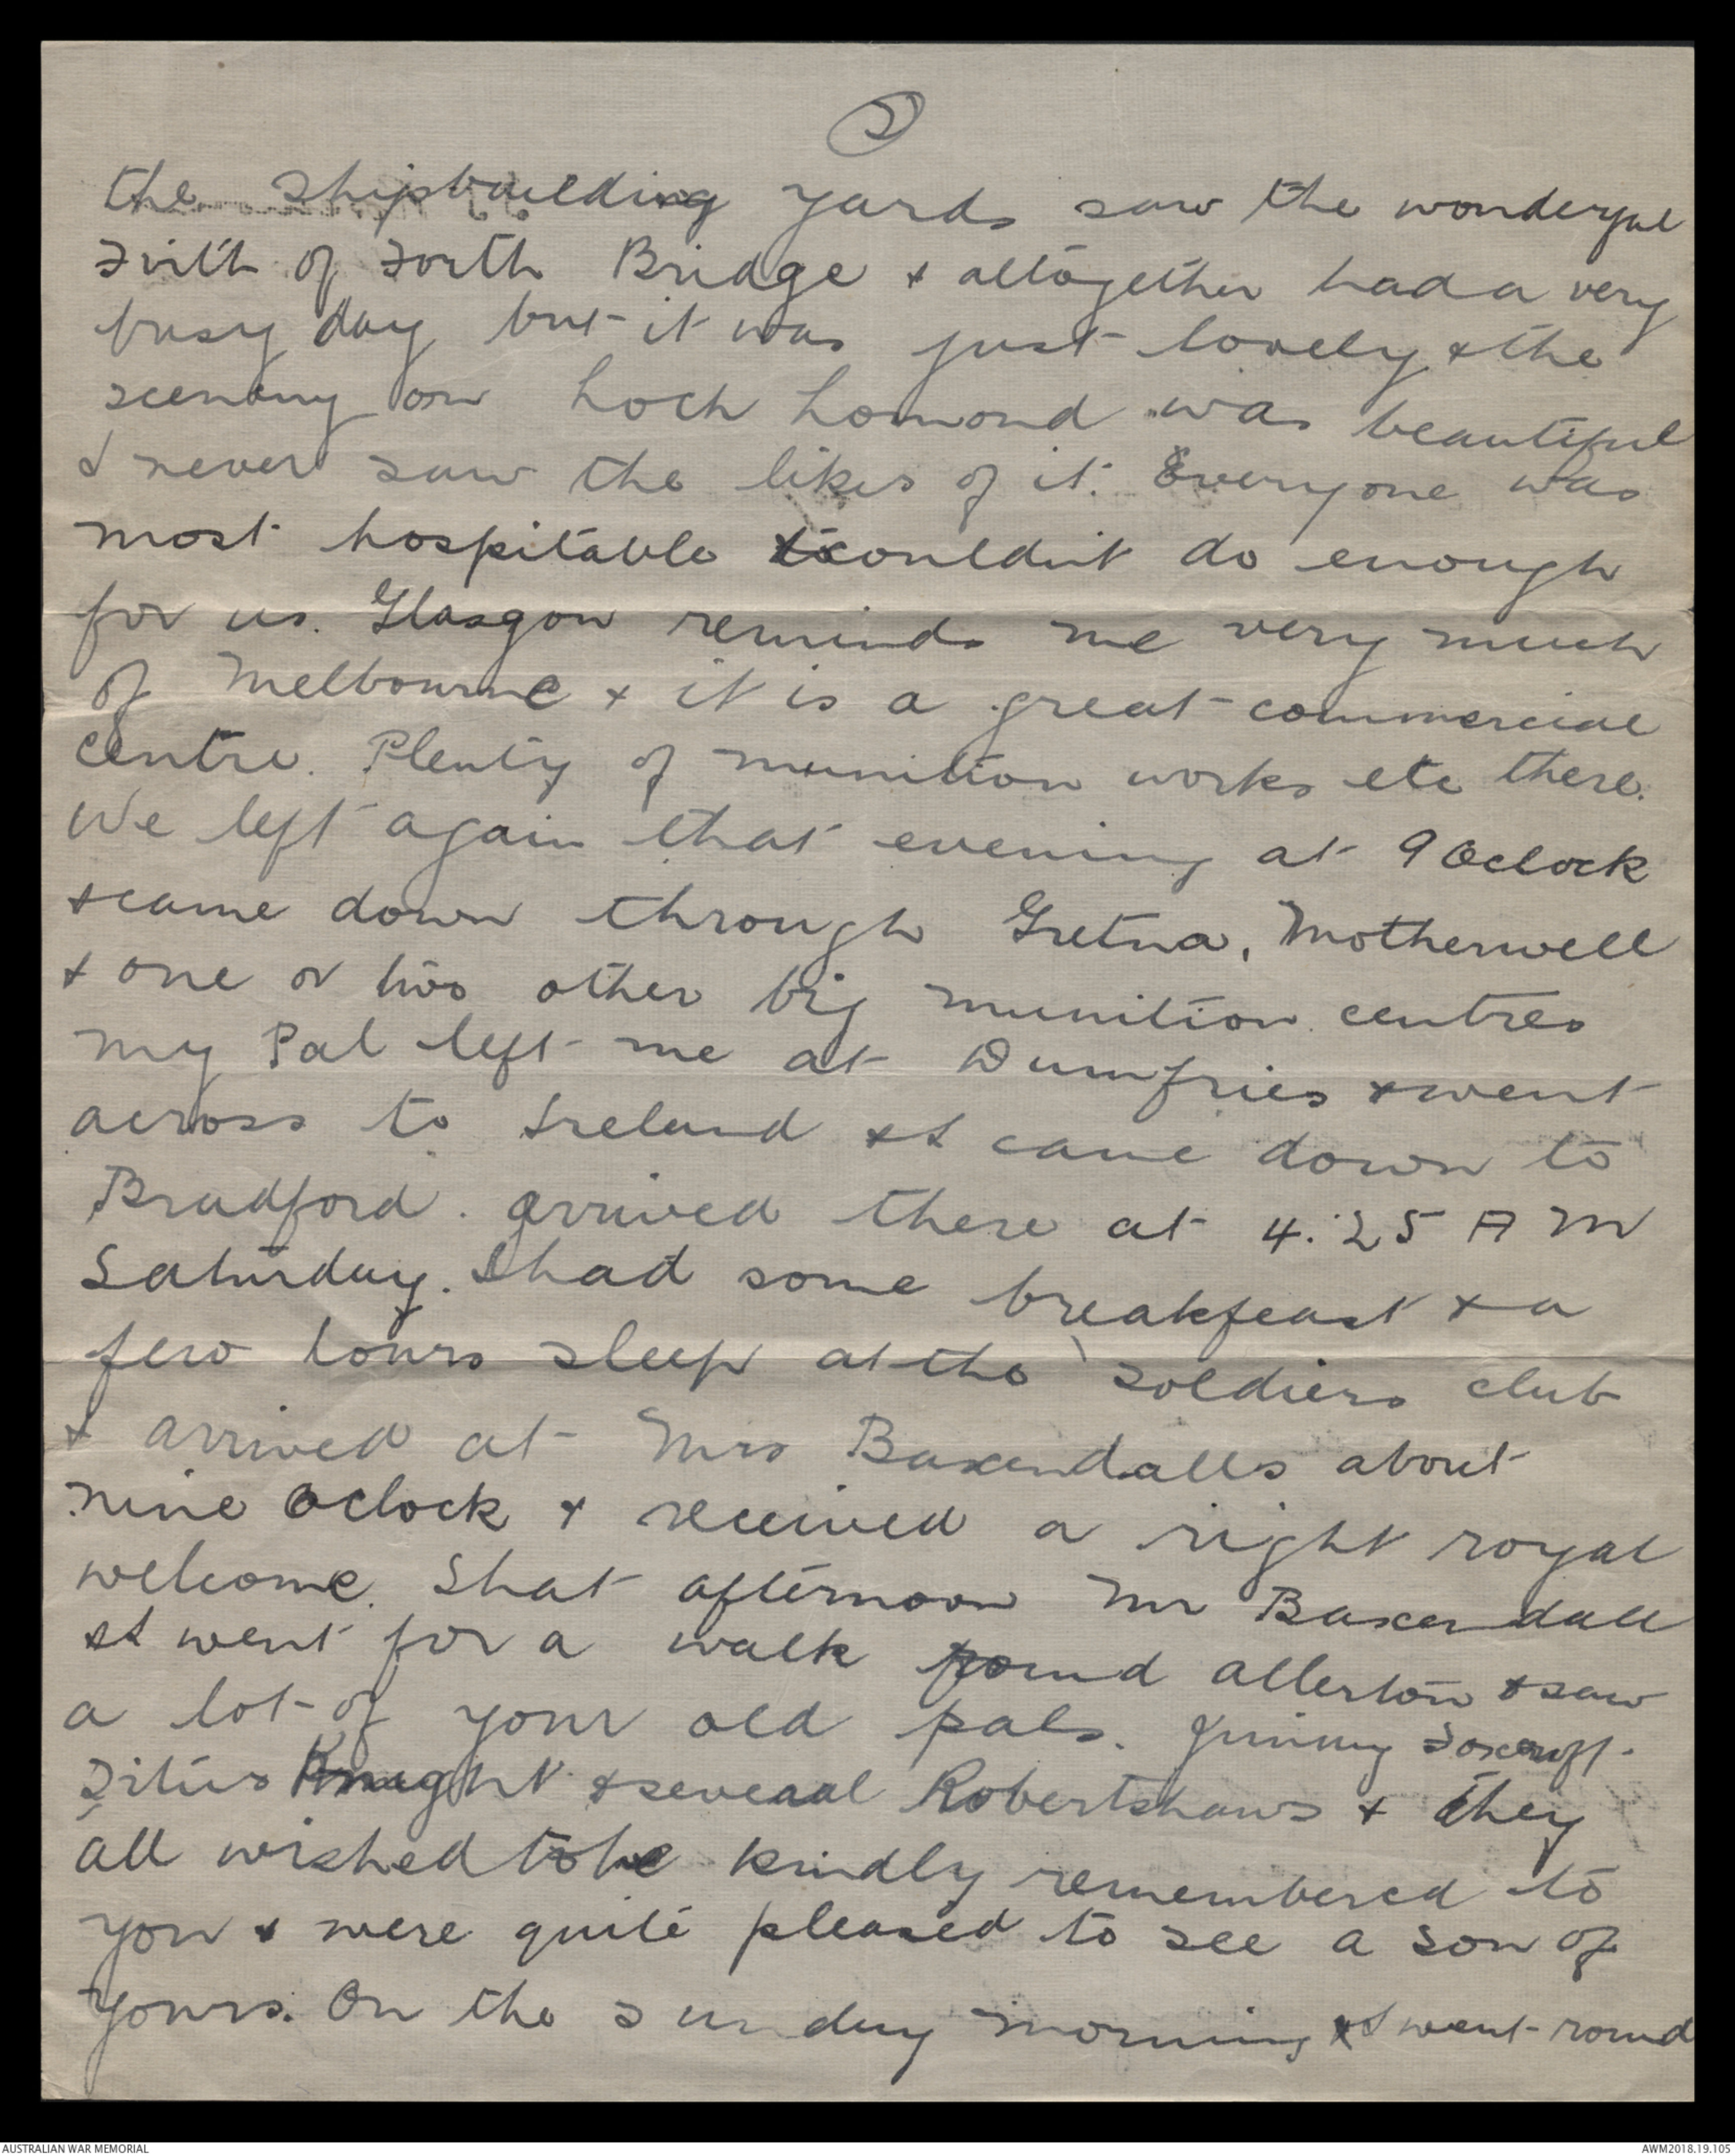 2
the shipbuilding yards saw the wonderful
Firth of Forth Bridge & altogether had a very
busy day but it was just lovely & the
scenery on Loch Lomond was beautiful
I never saw the likes of it. Everyone was
most hospitable & couldn't do enough
for us. Glasgow reminds me very much
of Melbourne & it is a great commercial
centre. Plenty of munition works etc there.
We left again that evening at 9 Oclock
& came down through Gretna, Motherwell
& one or two other big munition centres
my Pal left me at Dumfries & went
across to Ireland & I came down to
Bradford. arrived there at 4.25 A M
Saturday. I had some breakfeast & a
few hours sleep at the soldiers club
& arrived at Mrs Baxendalls about
nine Oclock & received a right royal
welcome. That afternoon Mr Baxendall
& I went for a walk round Allerton & saw
a lot of your old pals. Jimmy Foxcroft.
Titus Knight & several Robertshaws & they
all wished to be kindly remembered to
you & were quite pleased to see a son of
yours. On the Sunday morning I went round
AUSTRALIAN WAR MEMORIAL
AWM2018.19.105